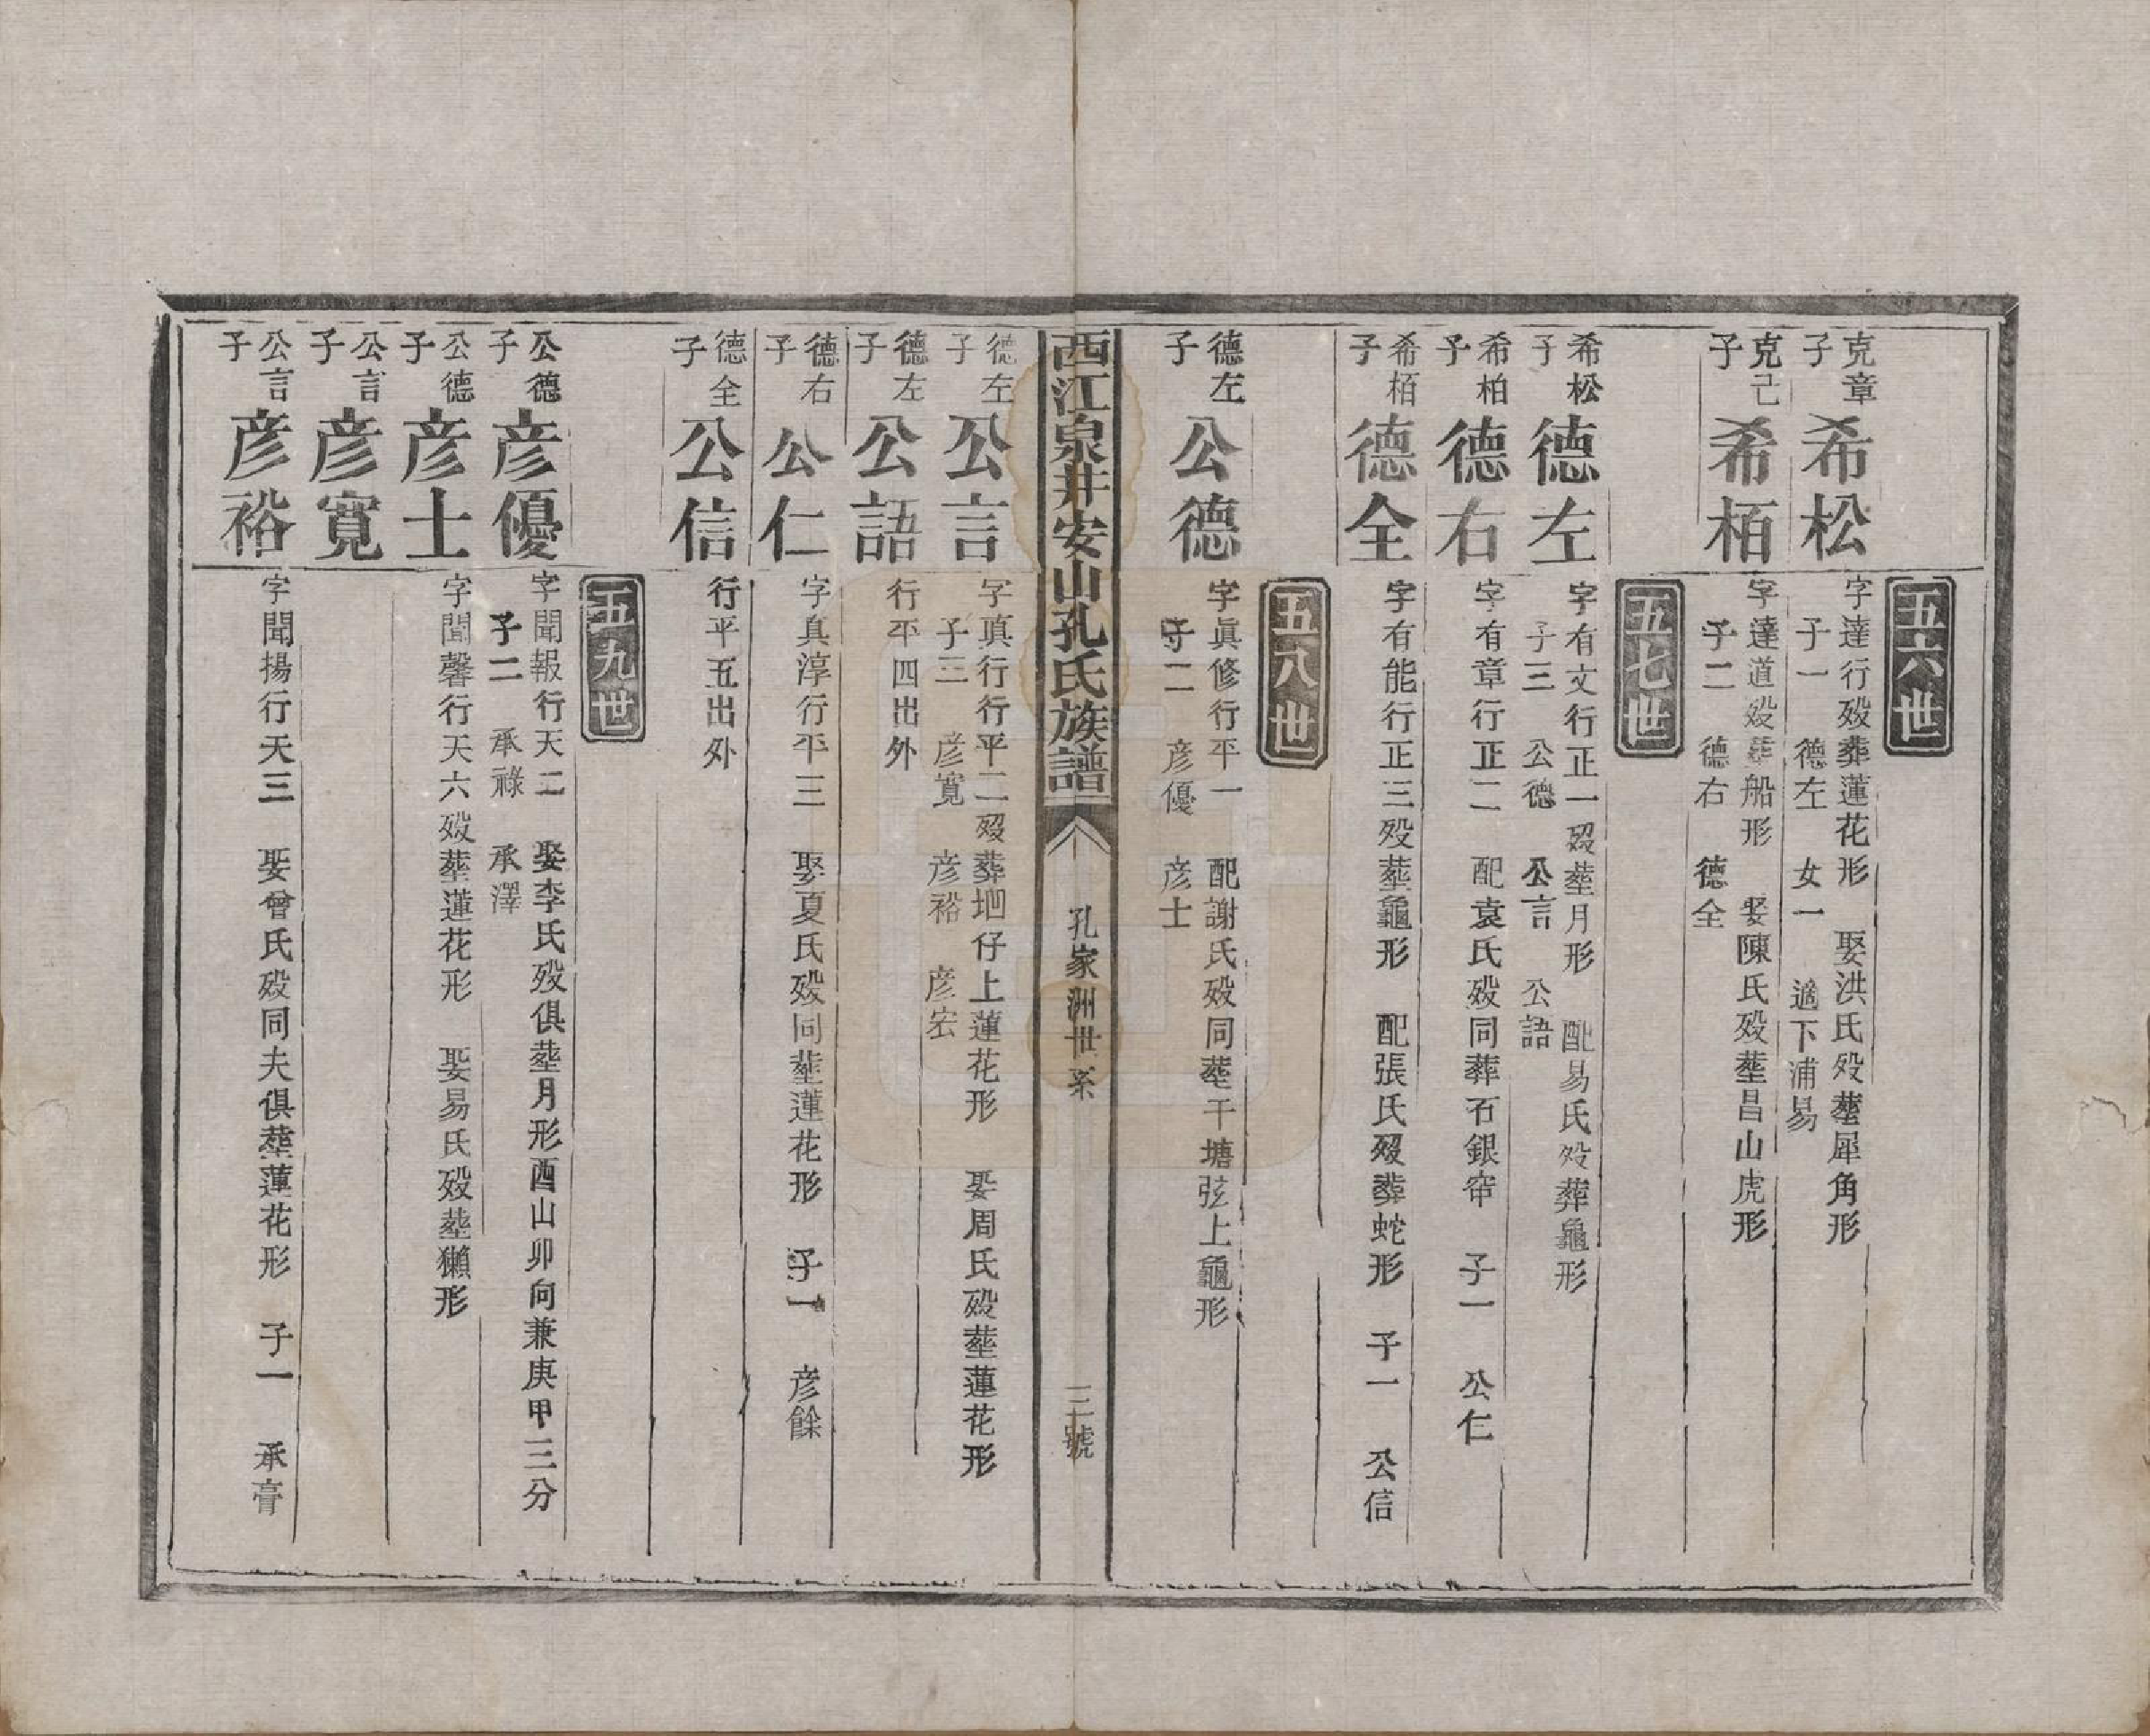 五六世
克章子 希松 字達行歿葬蓮花形 娶洪氏歿塟犀角形
子一 德左 女一 適下浦易
克己子 希栢 字達道歿葬船形 娶陳氏歿塟昌山虎形
子二 德右 德全
五七世
希松子 德左 字有文行正一歿塟月形 配易氏歿葬龜形
子三 公德 公言 公語
希柏子 德右 字有章行正二 配袁氏歿同葬石銀帘 子一 公仁
希栢子 德全 字有能行正三歿塟龜形 配張氏歿葬蛇形 子一 公信
五八世
德左子 公德 字眞修行平一 配謝氏歿同塟干塘弦上龜形
子二 彦優 彦士
西江泉井安山孔氏族譜 孔家洲世系 三號
德左子 公言 字瑱行行平二歿葬地仔上蓮花形 娶周氏歿塟蓮花形
子三 彦寛 彦裕 彦宏
德左子 公語 行平四出外
德右子 公仁 字真淳行平三 娶夏氏歿同塟蓮花形 子一 彦餘
德全子 公信 行平五出外
五九世
公德子 彦優 字聞報行天二 娶李氏歿俱塟月形酉山卯向兼庚甲三分
子二 承祿 承澤
公德子 彦士 字聞馨行天六歿塟蓮花形 娶易氏歿塟獺形
公言子 彦寛
公言子 彦裕 字聞揚行天三 娶曾氏歿同夫俱塟蓮花形 子一 承膏